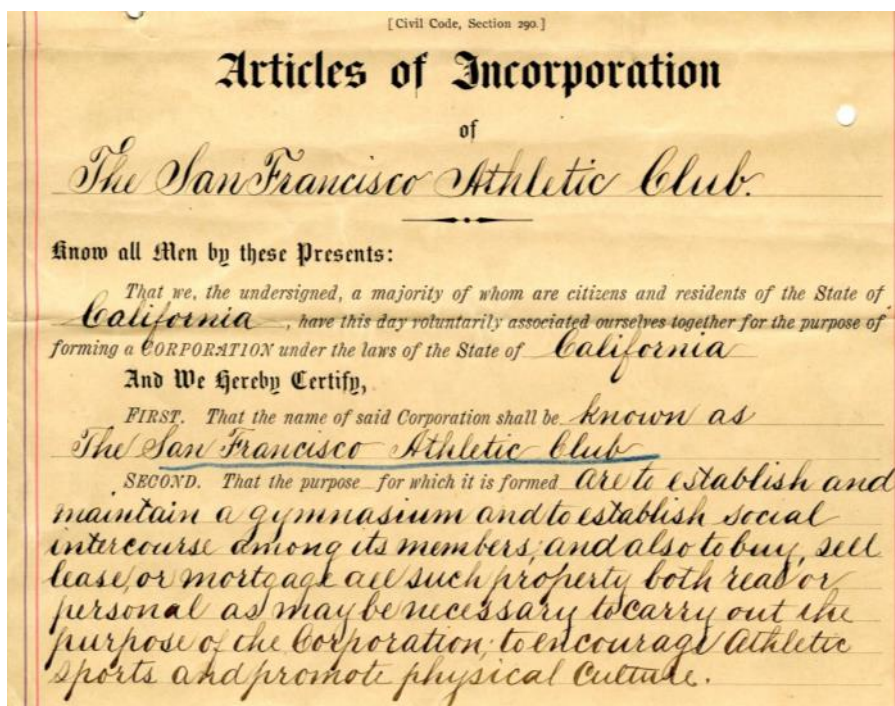 [Civil Code, Section 290.]
Articles of Incorporation
of
The San Francisco Athletic Club.
Know all Men by these Presents:
That we, the undersigned, a majority of whom are citizens and residents of the State of
California, have this day voluntarily associated ourselves together for the purpose of
forming a CORPORATION under the laws of the State of California
And We Hereby Certify,
FIRST. That the name of said Corporation shall be known as
The San Francisco Athletic Club
SECOND. That the purpose for which it is formed are to establish and
maintain a gymnasium and to establish social
intercourse among its members; and also to buy, sell
lease, or mortgage all such property both real or
personal as may be necessary to carry out the
purpose of the Corporation; to encourage Athletic
sports and promote physical Culture.